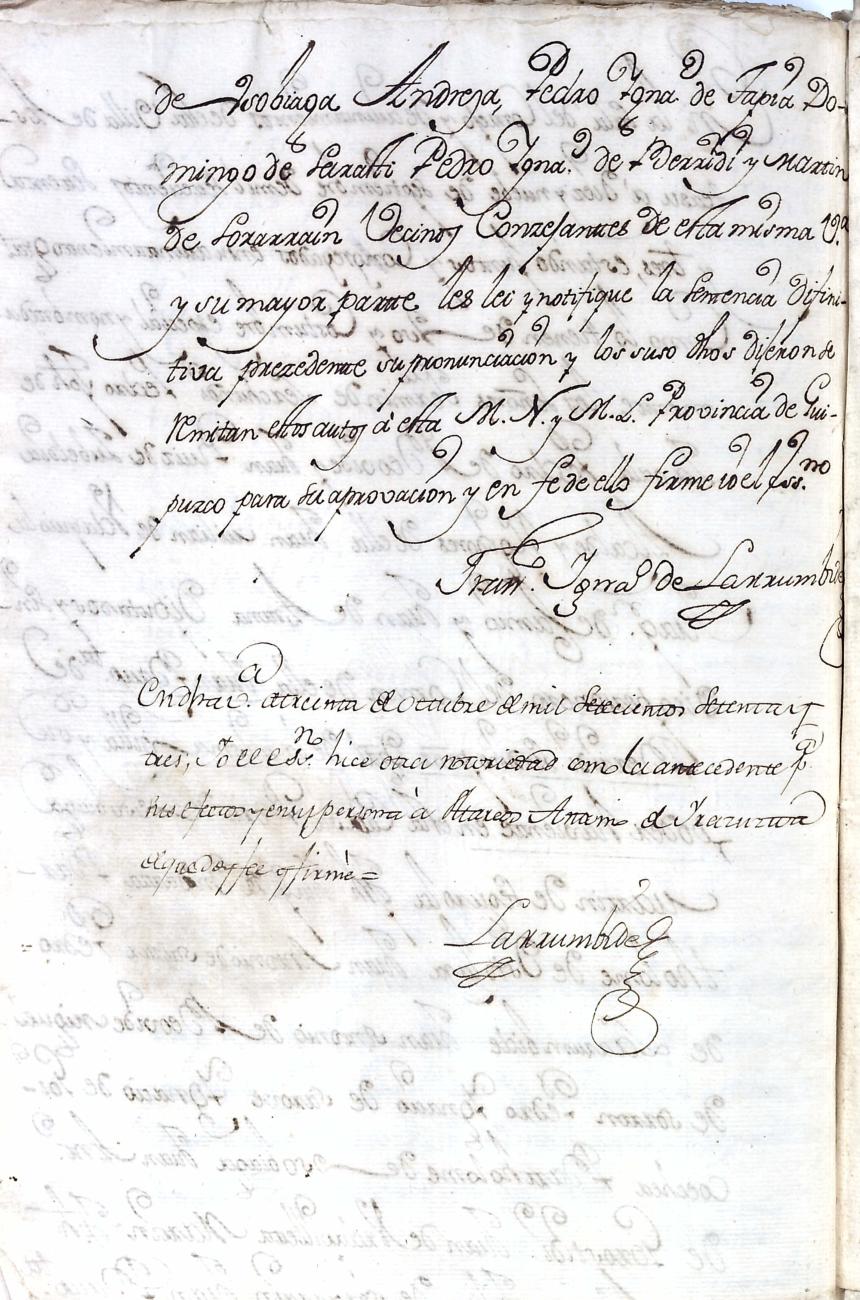 de Vsobiaga Andresa, Pedro Ygna.º de Tapia Do-
mingo de Saratti Pedro Ygna.º de Yberridi y Martin
de Sorarrain Vecinos Conzejantes de esta misma V.ª
y su mayor partte les lei y notifique la sentencia difini-
tiva prezedente su pronunciacion y los suso dhos dijeron se
Remitan esttos autos à esta M. N. y M. L. Provincia de Gui-
puzco para su aprovacion y en fe de ello firme io el Ess.no
Fran.co Ygna.o de Larrumbide
En dha v.a a treinta de octubre de mil setecientos setenta y
tres, Yo el es.no hice otra notoriedad como la antecedente p.a
los efectos y en su persona à Antam.o de Yrazuzta
de que doy fee y firmè =
Larrumbide